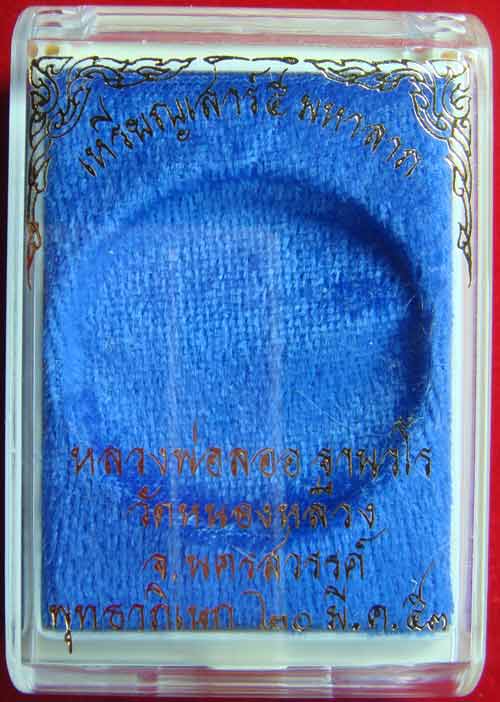 เหรียญเสาร์๕ มหาลาภ
หลวงพ่อลออ ฐานวโร
วัดหนองหลวง
จ.นครสวรรค์
พุทธาภิเษก ๒๐ มี.ค.๕๓